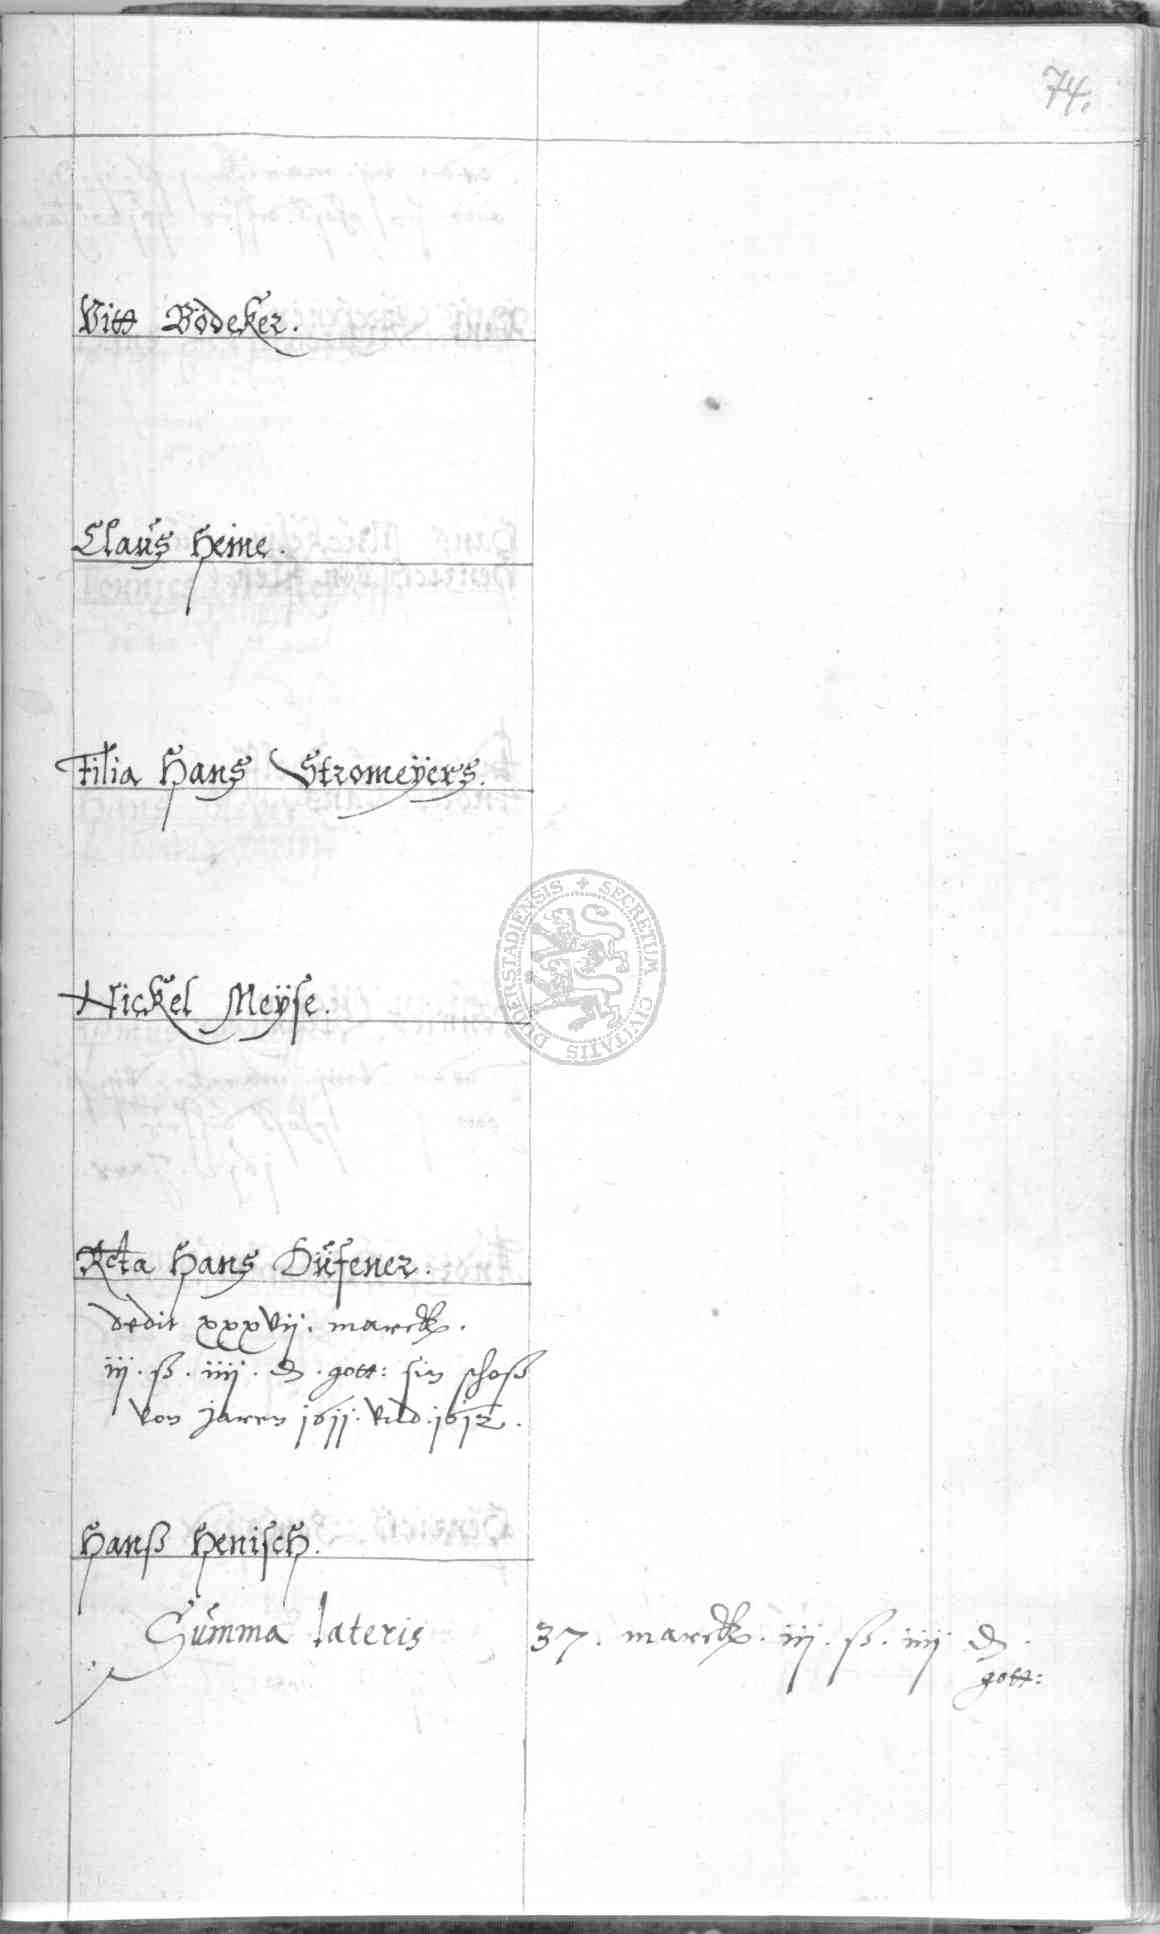 74.
Vitt Bödeker.
Claus Heine.
Filia Hans Stromeÿers.
Nickel Meÿse.
DUDERSTADIENSIS + SECRETUM CIVITATIS
Rcta Hans Düfener.
dedit xxxvij. marck.
iij. ß. iiij. d. gott: sin schoß
von jaren 1611. vnd. 1612.
Hanß Henisch.
Summa lateris 37. marck. iij. ß. iiij d.
gott: